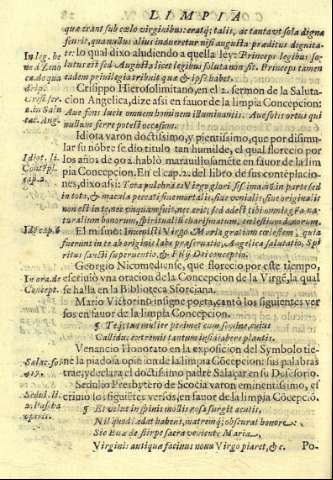 LIMPIA
quæ erant sub cælo virginibus: eratq; talis, de tanto vt sola digna
fuerit, qua nullus alius induretur nisi augusta præditus dignita-
te: lo qual dixo aludiendo a quella ley: Princeps legibus so-
lutus est sed Augusta licet legibus soluta non sit. Princeps tamen
eadem priuilegia tribuit quæ & ipse habet.
Crisippo Hierosolimitano, en el 2. sermon de la Saluta-
cion Angelica, dize assi en fauor de la limpia Concepcion:
Aue fons lucis omnem hominem illuminantis. Aue solis ortus qui
nullum ferre potest occasum.
Idiota varon doctissimo, y pientissimo, que por dissimu-
lar su nõbre se dio titulo tan humilde, el qual florecio por
los años de 902. hablò marauillosamẽte en fauor de la lim
pia Concepcion. En el cap. 2. del libro de sus contẽplacio-
nes, dixo assi: Tota pulchra es Virgo gloriosissima, nõ in parte sed
in toto, & macula peccati siue mortalis, siue venialis, siue originalis
non est in te, nec vnquam fuit, nec erit; sed adest tibi omnis gr̃a na
turalium bonorum, spiritualiũ charismatum, cœlestium donorum.
El mismo: Inuenisti Virgo Maria gratiam cœlestem, quia
fuerunt in te ab originis labe præseruatio, Angelica salutatio, Spi
ritus sancti superuentio, & Filij Dei conceptio.
Georgio Nicomediense, que florecio por este tiempo,
escriuio vna oracion de la Concepcion de la Virgẽ, la qual
se halla en la Biblioteca Sforciana.
Mario Victorino insigne poeta, cantò los siguientes ver
sos en fauor de la limpia Concepcion.
Venancio Honorato en la exposicion del Symbolo tie-
ne la piadosa opinion de la limpia Cõcepcion: sus palabras
trae, y declara el doctissimo padre Salaçar en su Defensorio.
Sedulio Presbytero de Scocia varon eminentissimo, es
criuio los siguiẽtes versos, en fauor de la limpia Cõcepciõ.
¶ Et velut in spinis mollis rosa surgit acutis,
Nil quod lædat habens, matremq; obscurat honore:
Sic Euæ de stirpe sacra veniente Maria,
Virginis antiquæ facinus noua Virgo piaret, &c.
Po-